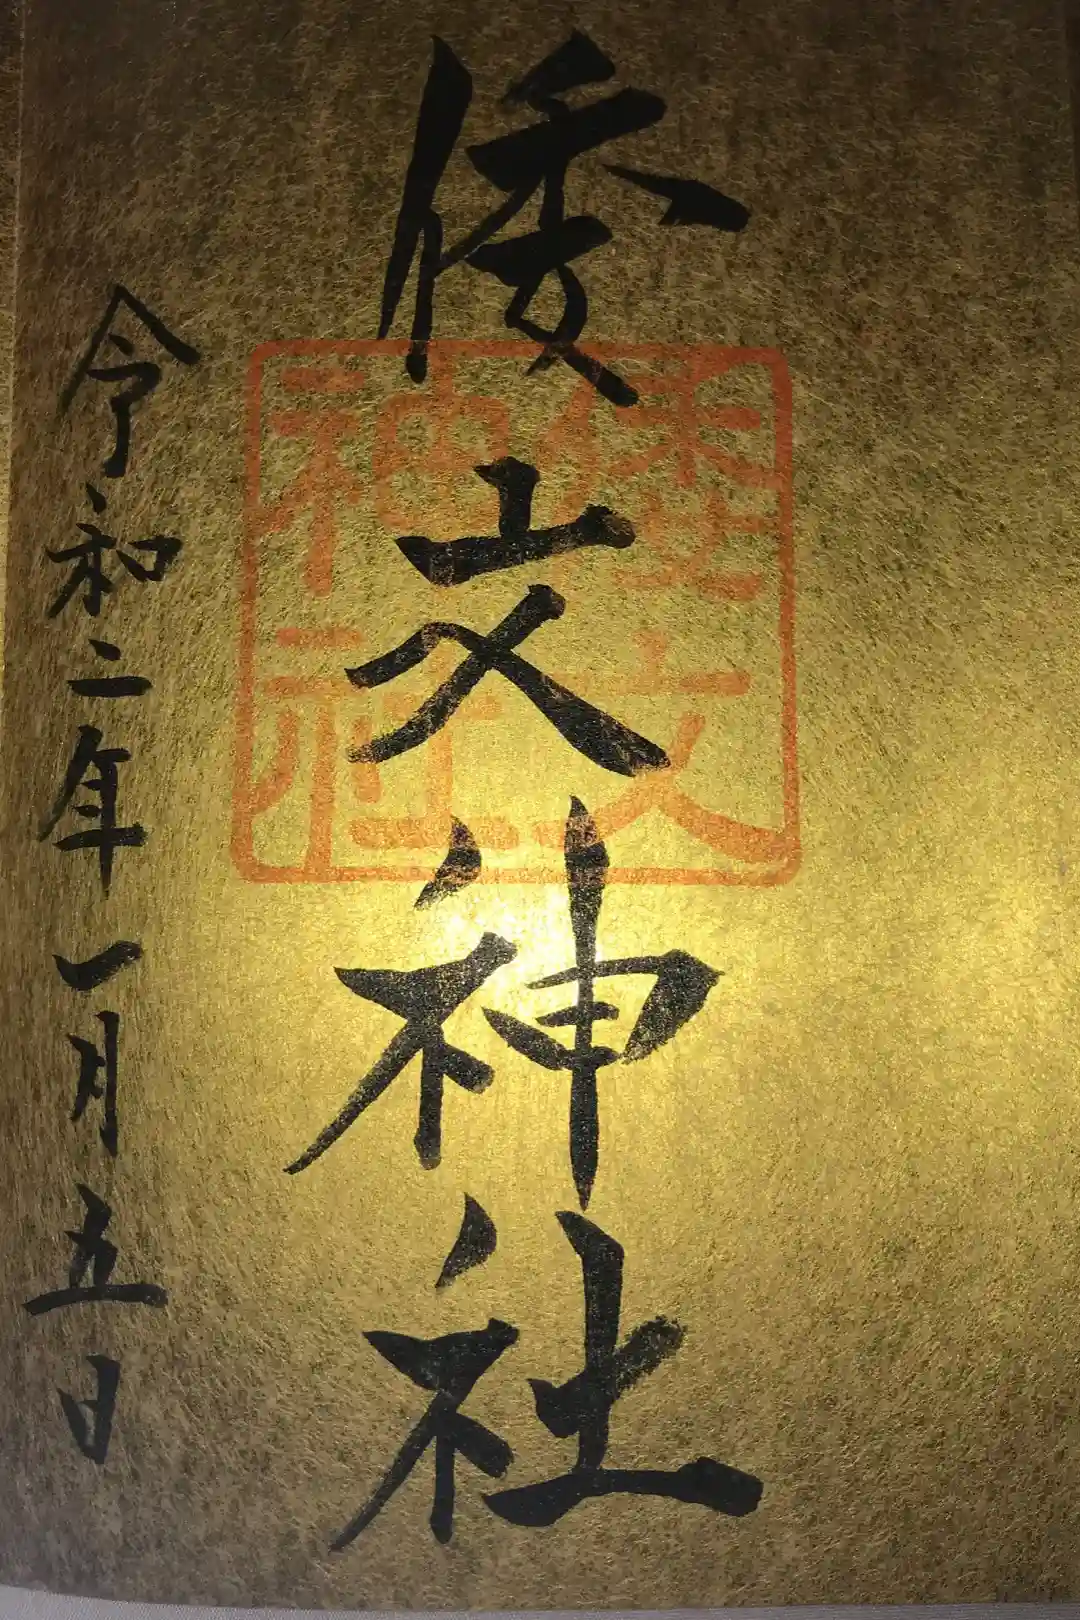 倭文神社
倭文
神社
令和二年一月五日